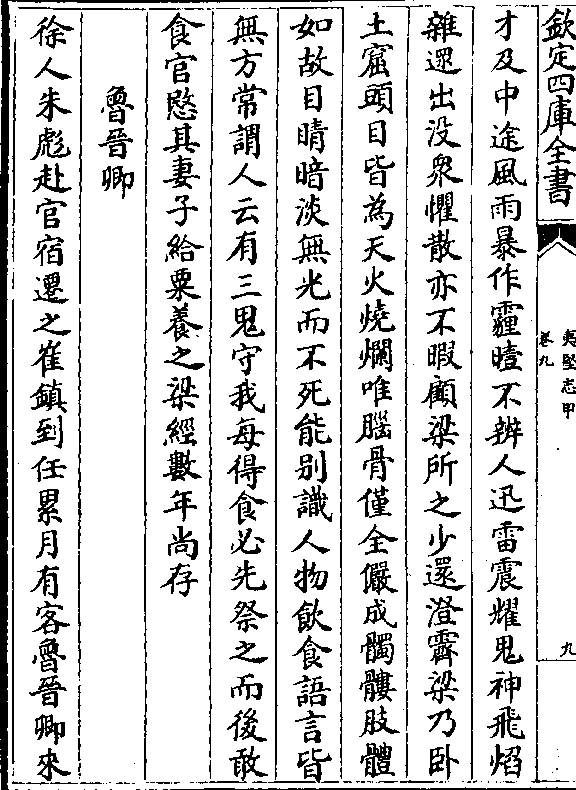 欽定四庫全書
夷堅志甲
卷九
九
才及中途風雨暴作霾曀不辨人迅雷震耀鬼神飛焰
雜遝出没衆懼散亦不暇顧梁所之少還澄霽梁乃卧
土窟頭目皆為天火燒爛唯腦骨僅全儼成髑髏肢體
如故目睛暗淡無光而不死能别識人物飲食語言皆
無方常謂人云有三鬼守我每得食必先祭之而後敢
食官愍其妻子給粟養之梁經數年尚存
魯晉卿
徐人朱彪赴官宿遷之崔鎮到任累月有客魯晉卿來